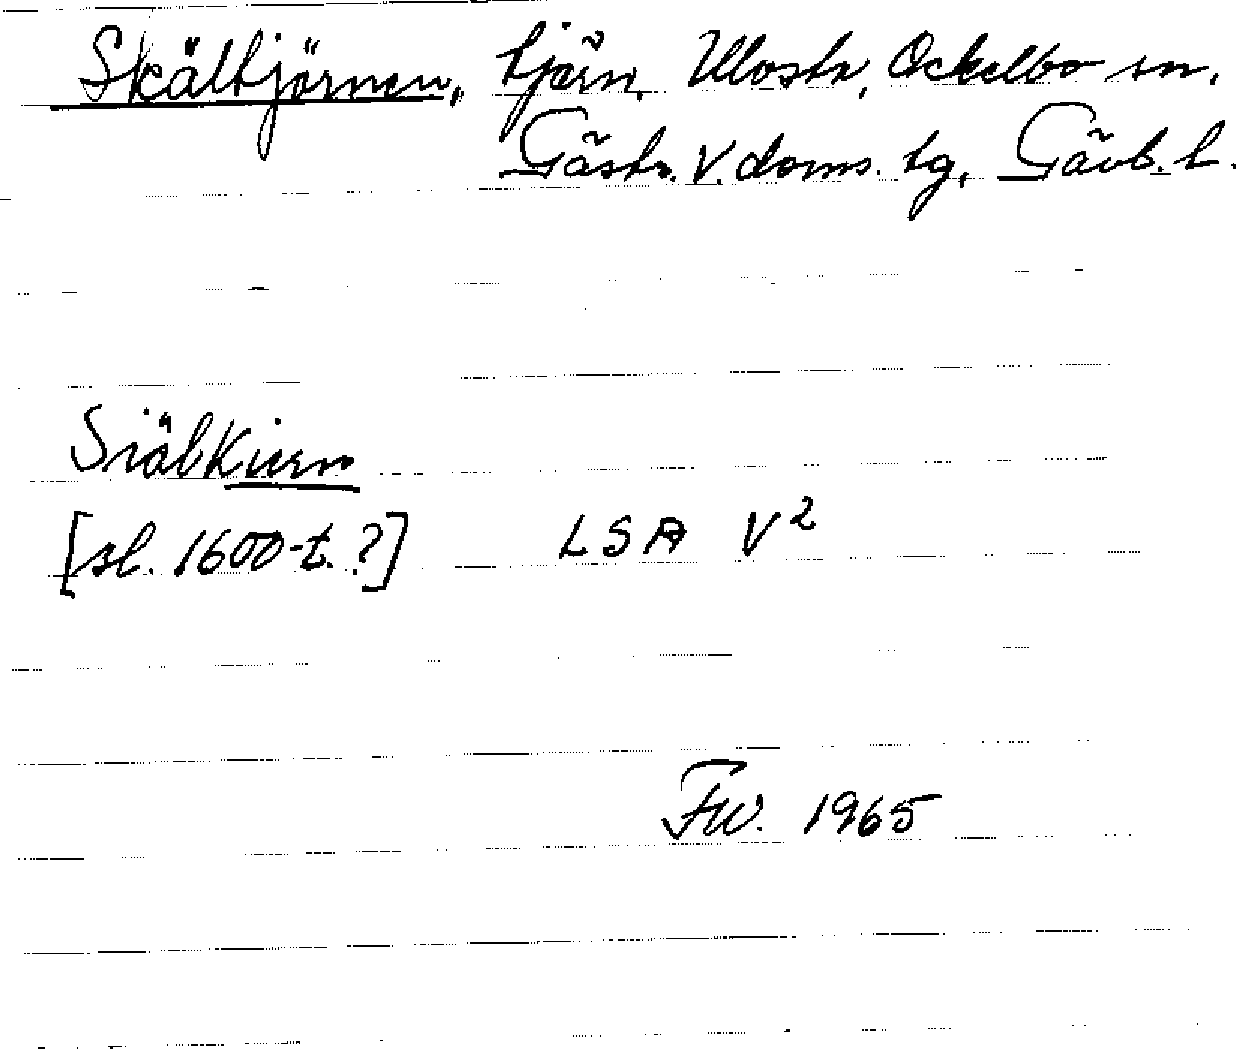 Skältjörnen, tjärn, Ulvstr, Ockelbo sn.
Gästr. V. doms. tg, Gävb. l.
Siälkiern
[sl. 1600-t. ?] LSA V²
FW. 1965